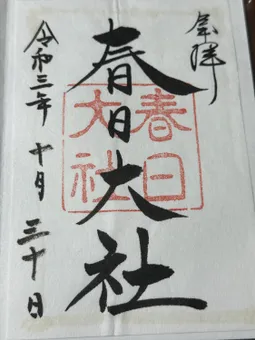 奉拝
春日大社
春日
大社
令和三年 十月 三十日